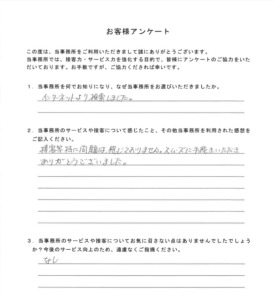 お客様アンケート
この度は、当事務所をご利用いただきまして誠にありがとうございます。
当事務所では、接客力・サービス力を強化する目的で、皆様にアンケートのご協力をいた
だいております。お手数ですが、ご協力くだされば幸いです。
1．当事務所を何でお知りになり、なぜ当事務所をお選びいただきましたか。
インターネットより検索しました。
2．当事務所のサービスや接客について感じたこと、その他当事務所を利用された感想を
ご記入ください。
接客等特に問題は感じておりません。スムーズに手続きいただき
ありがとうございました。
3．当事務所のサービスや接客についてお気に召さない点はありませんでしたでしょう
か？今後のサービス向上のため、遠慮なくご指摘ください。
なし